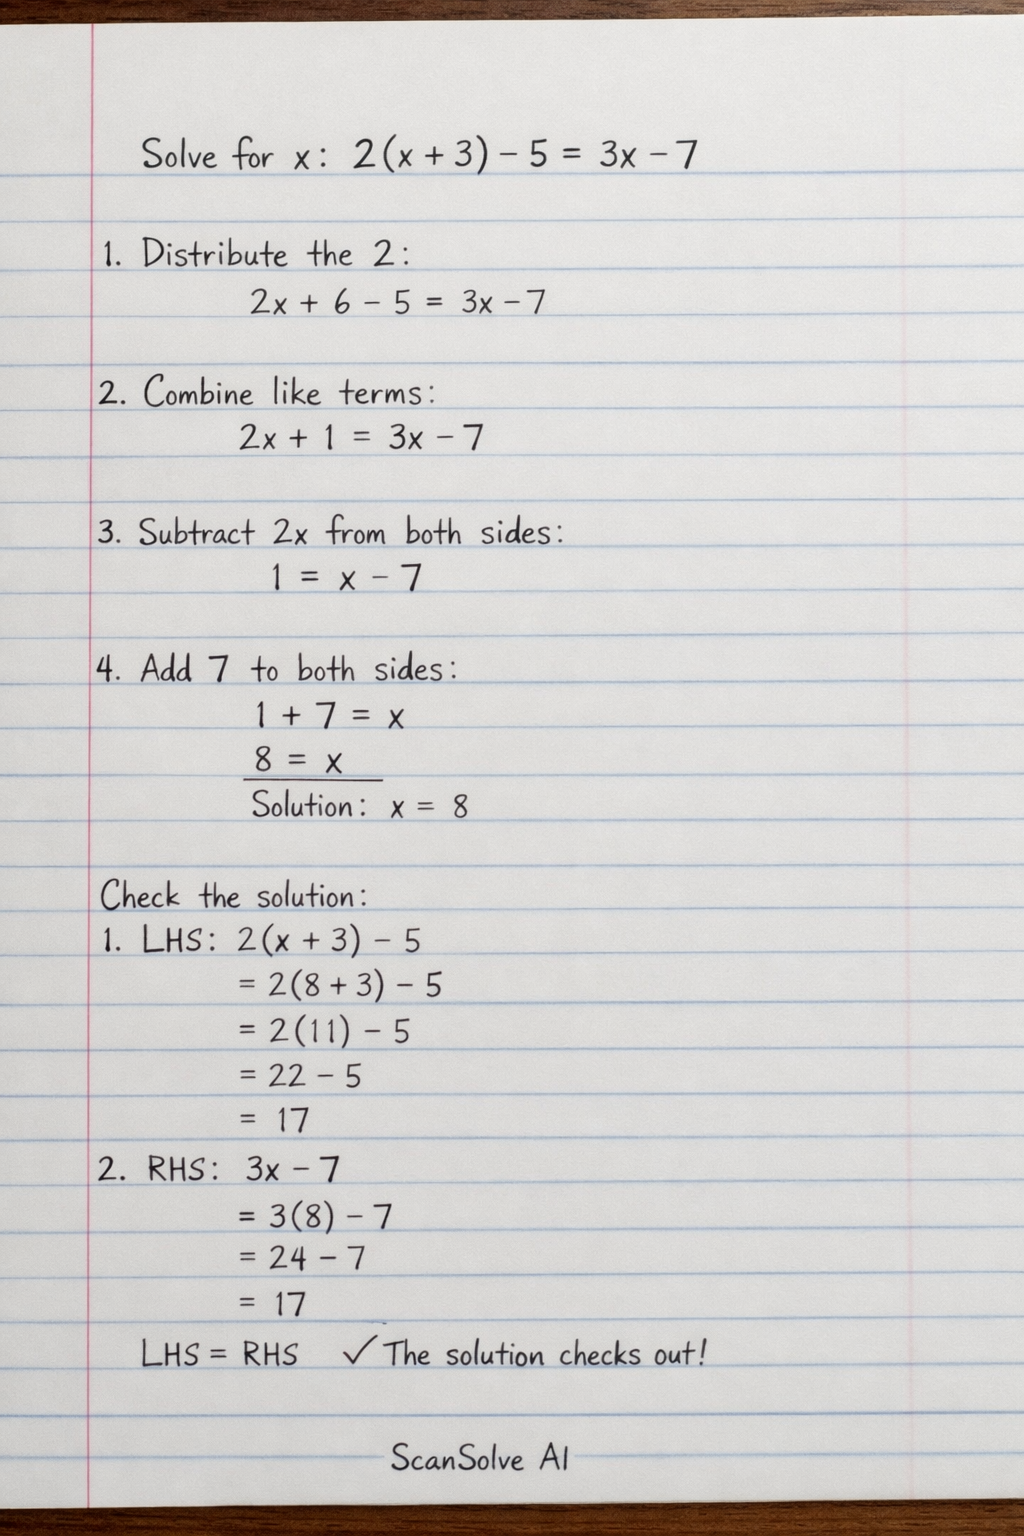 Solve for x: 2(x + 3) − 5 = 3x − 7
1. Distribute the 2:
2x + 6 − 5 = 3x − 7
2. Combine like terms:
2x + 1 = 3x − 7
3. Subtract 2x from both sides:
1 = x − 7
4. Add 7 to both sides:
1 + 7 = x
8 = x
Solution: x = 8
Check the solution:
1. LHS: 2(x + 3) − 5
= 2(8 + 3) − 5
= 2(11) − 5
= 22 − 5
= 17
2. RHS: 3x − 7
= 3(8) − 7
= 24 − 7
= 17
LHS = RHS ✓ The solution checks out!
ScanSolve AI